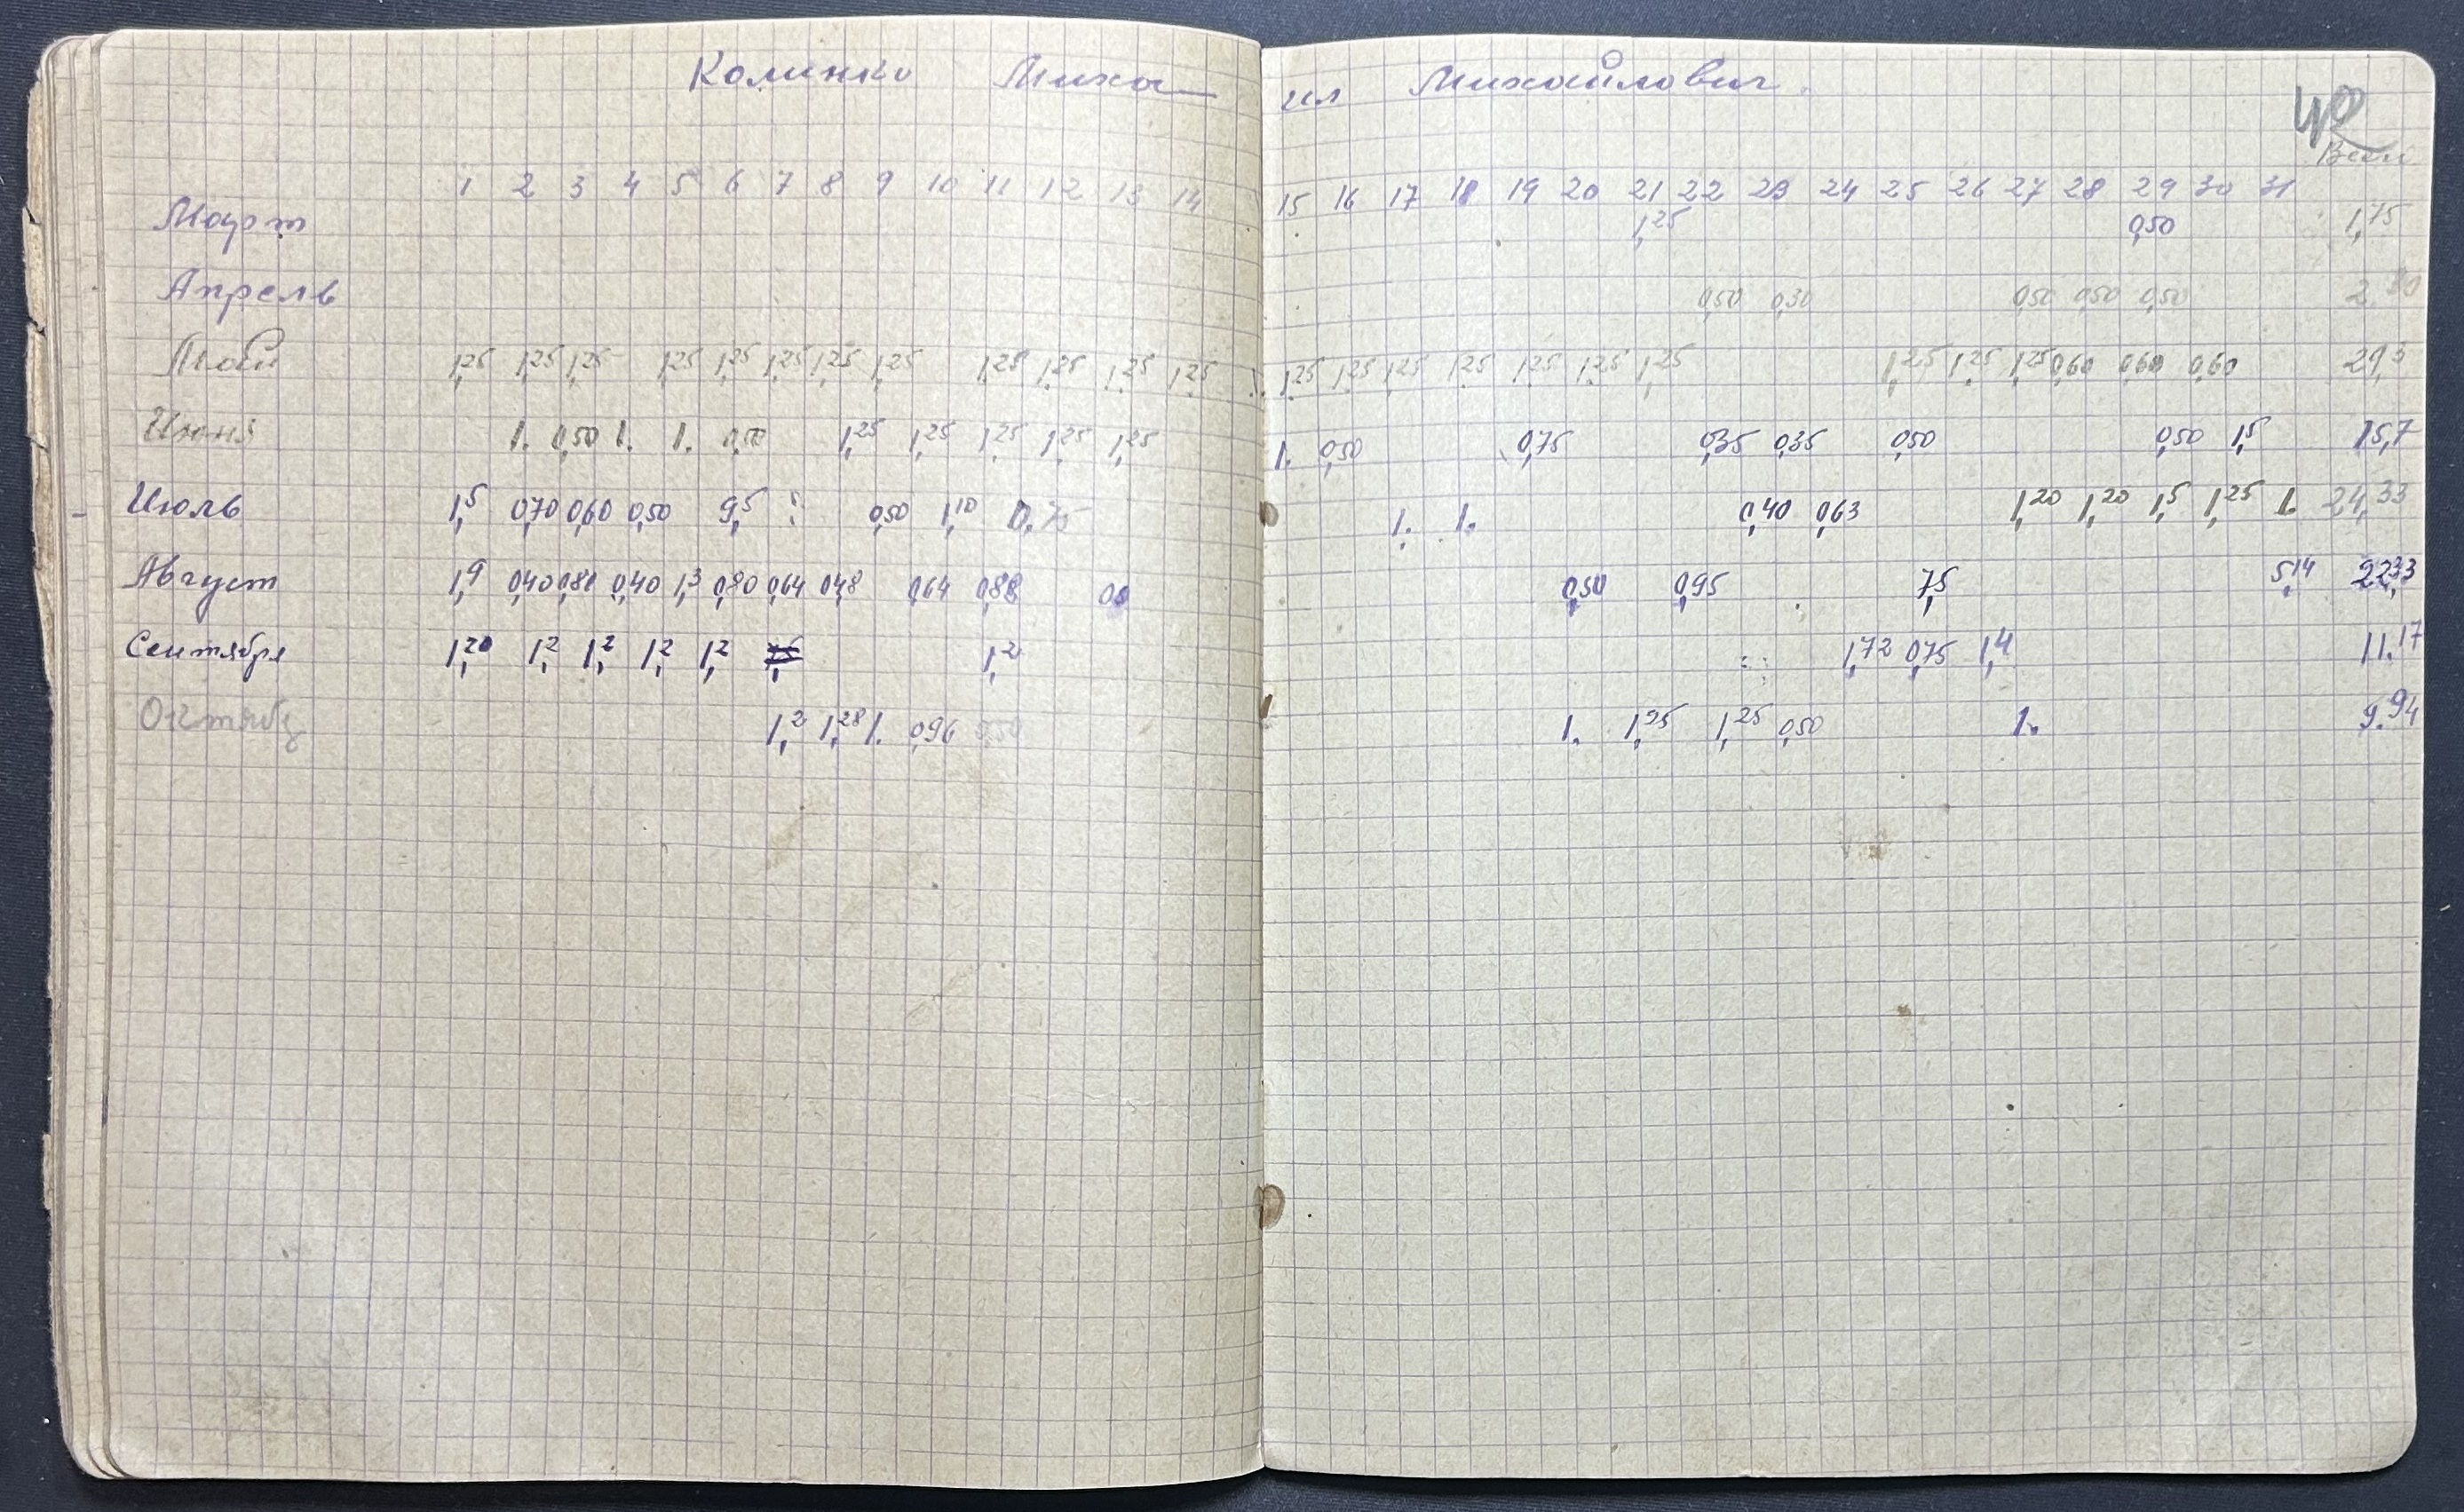 Калинко Миха ил Михайлович.
40
Всего
1 2 3 4 5 6 7 8 9 10 11 12 13 14 15 16 17 18 19 20 21 22 23 24 25 26 27 28 29 30 31
Март 1,25 0,50 1,75
Апрель 0,50 0,30 0,50 0,50 0,50 2,30
Май 1,25 1,25 1,25 1,25 1,25 1,25 1,25 1,25 1,25 1,25 1,25 1,25 1,25 1,25 1,25 1,25 1,25 1,25 1,25 1,25 1,25 1,25 0,60 0,60 0,60 29,3
Июня 1. 0,50 1. 1. 0,50 1,25 1,25 1,25 1,25 1,25 1. 0,50 0,75 0,35 0,35 0,50 0,50 1,5 15,7
Июль 1,5 0,70 0,60 0,50 9,5 0,50 1,10 0,75 1. 1. 0,40 0,63 1,20 1,20 1,5 1,25 1. 24,33
Август 1,9 0,40 0,80 0,40 1,3 0,80 0,64 0,48 0,64 0,88 0,50 0,95 7,5 5,14 22,33
Сентября 1,20 1,2 1,2 1,2 1,2 1,2 1,72 0,75 1,4 11.17
Октябр 1,2 1,28 1. 0,96 0,50 1. 1,25 1,25 0,50 1. 9.94